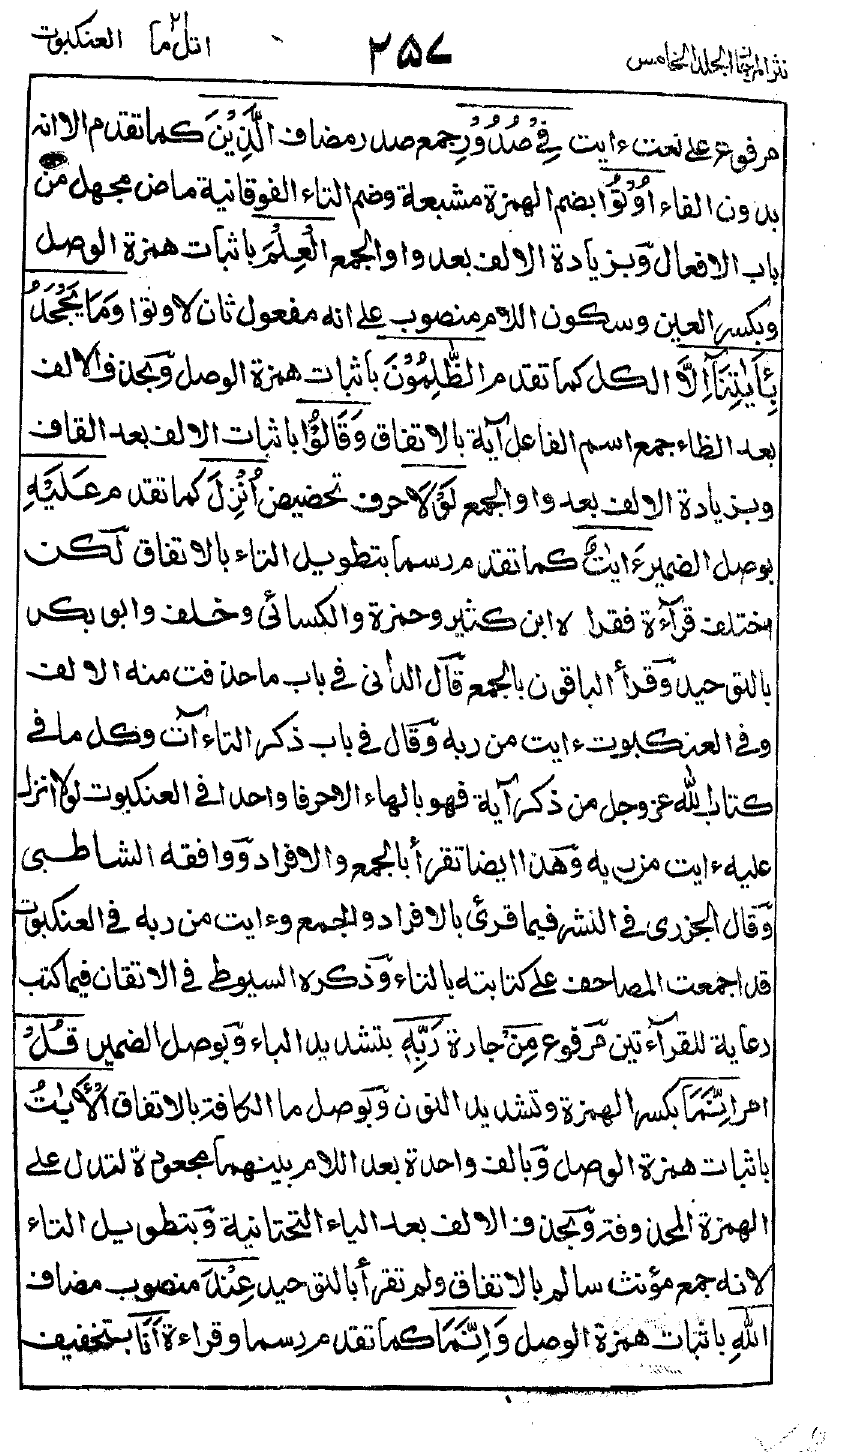 نثر المرجان الجلد الخامس ٢٥٧ اتل ما ٢١ العنكبوت
مرفوع على نعت ءايت فِىْ صُدُوْرِ جمع صدر مضاف الَّذِيْنَ كما تقدم الا انه
بدون الفاء اُوْتُوا بضم الهمزة مشبعة وضم التاء الفوقانية ماض مجهل من
باب الافعال وَبزيادة الالف بعد واو الجمع الْعِلْمَ باثبات همزة الوصل
وبكسر العين وسكون اللام منصوب على انه مفعول ثان لاوتوا وَمَا يَجْحَدُ
بِـاٰيٰتِنَآ اِلَّا الكل كما تقدم الظّٰلِمُوْنَ باثبات همزة الوصل وَبحذف الالف
بعد الظاء جمع اسم الفاعل آية بالاتفاق وَقَالُوْا باثبات الالف بعد القاف
وبزيادة الالف بعد واو الجمع لَوْلَا حرف تحضيض اُنْزِلَ كما تقدم عَلَيْهِ
بوصل الضمير ءَايٰتٌ كما تقدم رسما بتطويل التاء بالاتفاق لكن
مختلف قرآءة فقرا ه ابن كثير وحمزة والكسائى وخلف وابو بكر
بالتوحيد وَقرأ الباقون بالجمع قَال الدانى فى باب ما حذفت منه الالف
وفى العنكبوت ءايت من ربه وَقال فى باب ذكر التاءآت وكل ما فى
كتاب الله عز وجل من ذكر آية فهو بالهاء الا حرفا واحدا فى العنكبوت لولا انزل
عليه ءايت من ربه وَهذا ايضا تقرأ بالجمع والافراد وَوافقه الشاطبى
وَقال الجزرى فى النشر فيما قرئ بالافراد والجمع وءايت من ربه فى العنكبوت
قد اجمعت المصاحف على كتابته بالتاء وَذكره السيوطى فى الاتقان فيما كتب
رعاية للقرآءتين مَرفوع مِنْ جارة رَبِّهٖ بتشديد الباء وَبوصل الضمير قُلْ
امر اِنَّمَا بكسر الهمزة وتشديد النون وَبوصل ما الكافة بالاتفاق الْاٰيٰتُ
باثبات همزة الوصل وَبالف واحدة بعد اللام بينهما مجعودة لتدل على
الهمزة المحذوفة وَبحذف الالف بعد الياء التحتانية وَبتطويل التاء
لانه جمع مؤنث سالم بالاتفاق ولم تقرأ بالتوحيد عِنْدَ منصوب مضاف
اللهِ باثبات همزة الوصل وَاِنَّمَا كما تقدم رسما وقراءة اَنَا بتخفيف